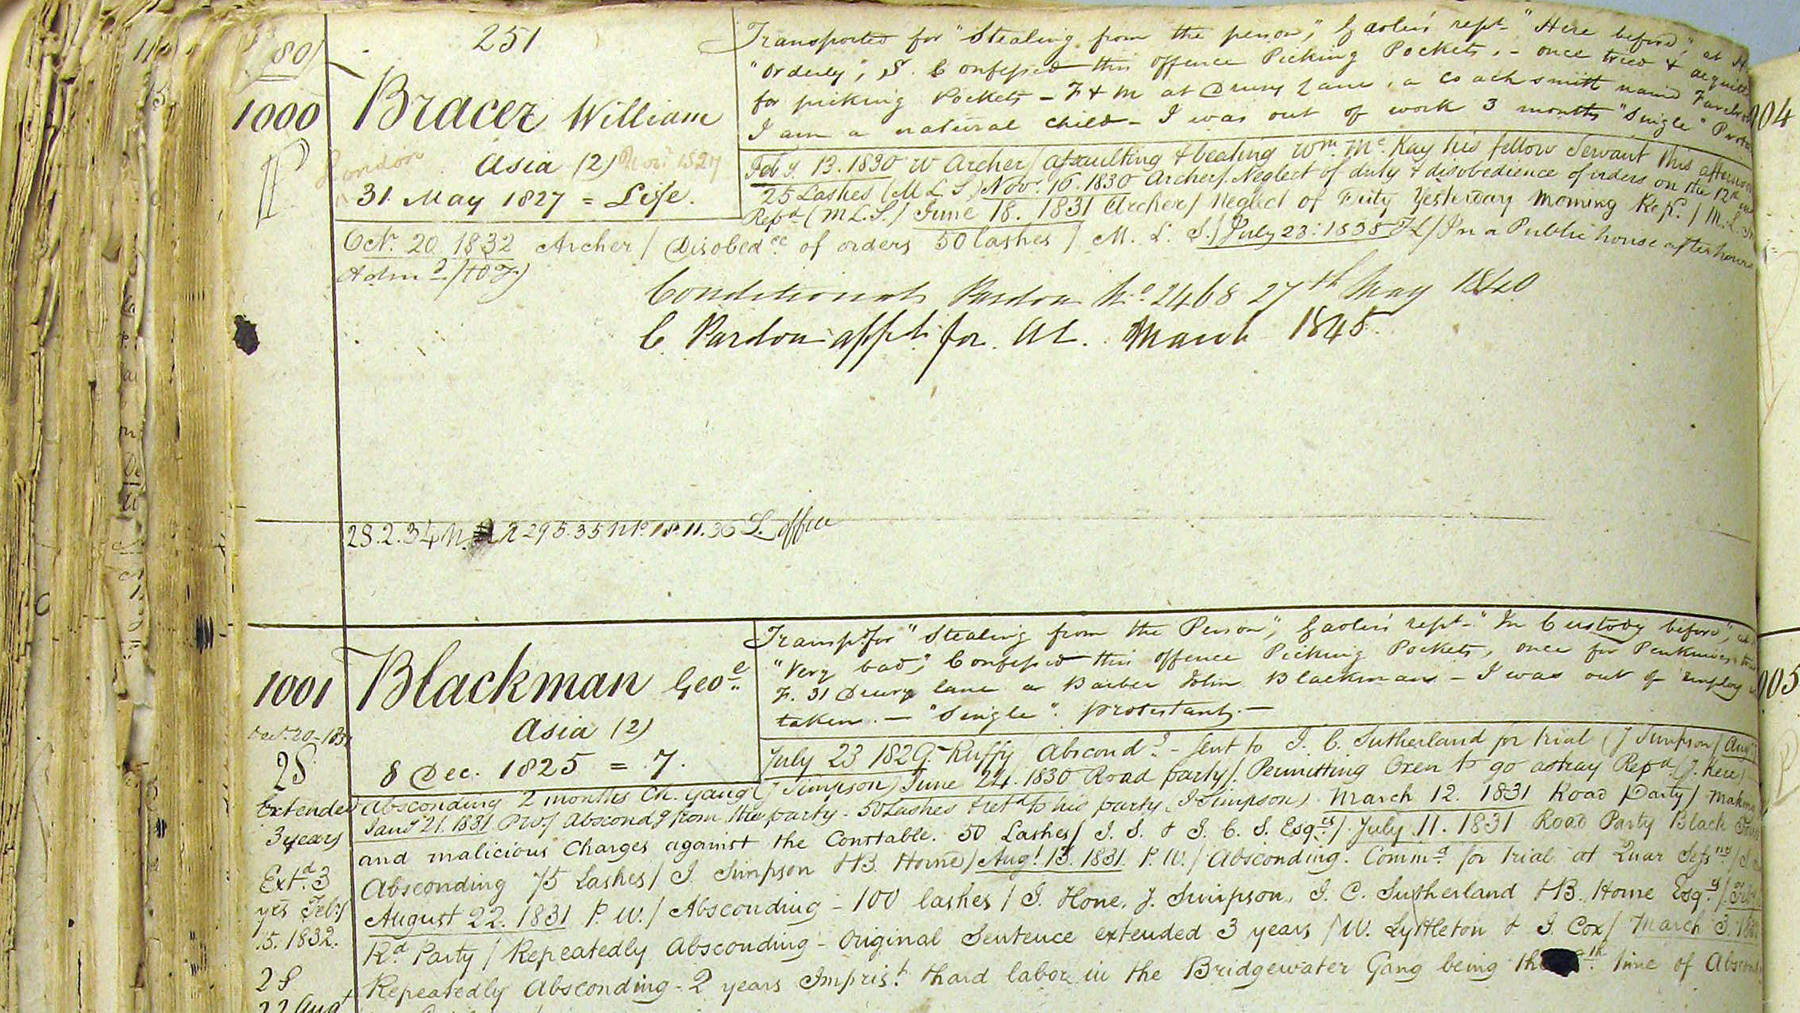 80
251
1000
Bracer William
London
Asia (2) Nov 1827
31 May 1827 = Life.
Transported for "Stealing from the person", Gaoler's rept "Here before", at
"Orderly", S. Confessed this offence Picking Pockets. - once tried &
for picking Pockets - F & M at Drury Lane, a coach smith named
I am a natural child - I was out of work 3 months "Single"
Feby 13. 1830 W Archer / assaulting & beating Wm. Mc. Kay his fellow Servant this afternoon
25 Lashes (M L S) Nov. 16. 1830 Archer/. Neglect of duty & disobedience of orders on the 12th
Repd (M L.S./ June 18. 1831 Archer/ Neglect of Duty Yesterday Morning Repd. / M. L. S
Octr. 20 1832 Archer / Disobedce of orders 50 lashes / M. L. S./ July 23: 1835 TL / In a Public house after hours
Admd
Conditional Pardon No 2468 27th May 1840
C Pardon appd for March 1845
28.2.34 29 5.35 11.36 office
004
1001
Blackman Geoe
Asia (2)
8 Dec. 1825 = 7.
Transpd for "Stealing from the Person", Gaoler's rept "In Custody before",
"Very bad", Confessed this offence Picking Pockets, once for Penknives
F. 31 Drury lane a Barber John Blackman - I was out of employ
taken. - "Single". Protestant. -
July 23 1829. Ruffy / Abscondg - Sent to J. C. Sutherland for trial (J Simpson/
Absconding 2 months Ch. gang (J Simpson) June 24. 1830 Road party/. Permitting Oxen to go astray Repd (J. Kerr)
Jany 21. 1831 P.W./ Abscondg from the party - 50 Lashes & retd to his party. J Simpson) March 12. 1831 Road Party/
and malicious Charges against the Constable. 50 Lashes/ J. S. & J. C. S. Esqrs/ July. 11. 1831 Road Party Black
Absconding 75 Lashes/ J. Simpson & B. Horne) Augt. 13. 1831. P. W./ Absconding. Commd for trial at Quar Sessns
August 22. 1831 P. W./ Absconding - 100 lashes / J. Hone. J. Simpson, J. C. Sutherland & B. Horne Esqrs
Rd Party / Repeatedly Absconding - Original Sentence extended 3 years / W. Lyttleton & J. Cox/ March 3.
Repeatedly Absconding - 2 years Imprist. & hard labor in the Bridgewater Gang being the time of
20-
2S
Extended
3 years
Extd 3
yrs Feby
5. 1832.
2S
22 Augt
005